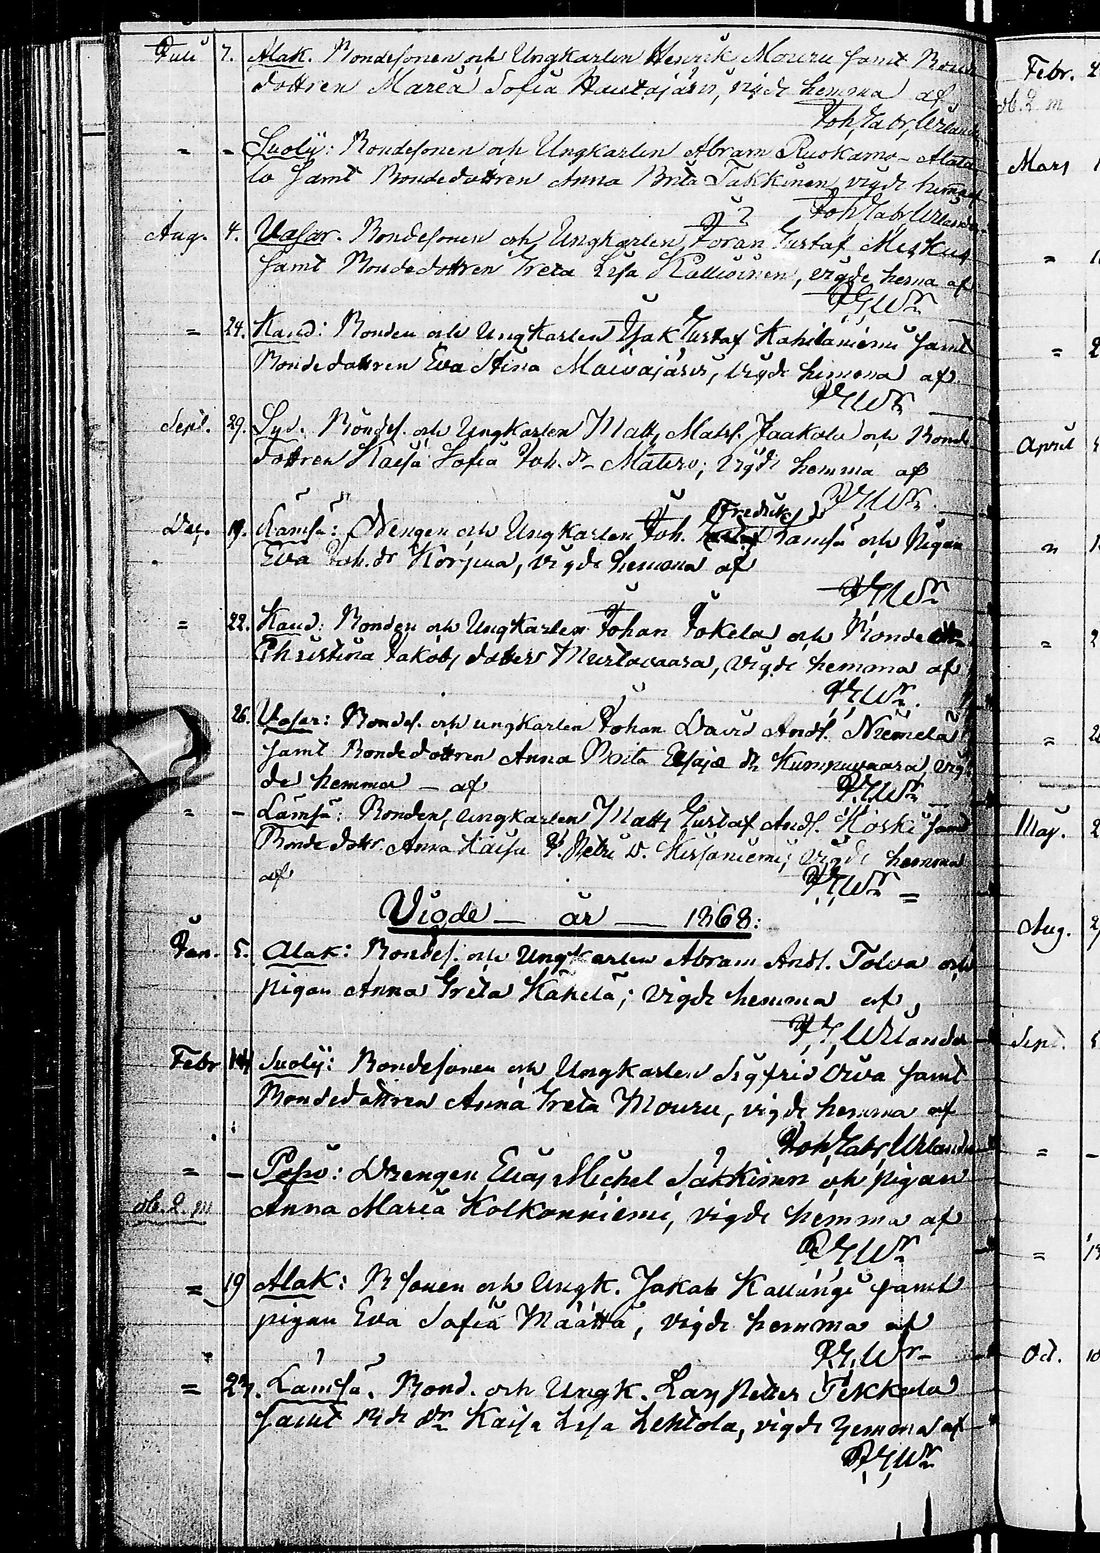 Juli 7. Alak. Bondesonen och Ungkarlen Henrik Mouru samt Bonde
dottren Maria Sofia Haustajärvi, vigde hemma af
Joh. Gabr. Wrlander
= - Suolij: Bondesonen och Ungkarlen Abram Ruokamo-Alata
lo samt Bondedottren Anna Brita Takkinen, vigde hemma af
Joh. Gabr. Wrlander
Aug. 4. Vasar. Bondesonen och Ungkarlen Göran Gustaf
samt Bondedottren Greta Lisa Kallioinen, vigde hema af
J. G. Wr
= 24. Kaud: Bonden och Ungkarlen Isak Gustaf Kahilaniemi samt
Bondedottren Eva Stina Maivajärvi, vigde hemma af
J. G. Wr
Sept. 29. Bondes. och Ungkarlen Matts Mats s. Jaakola och Bonde
dottren Kaisa Sofia Joh. dr Matero; vigde hemma af
J. G. Wr.
Dec. 19. Lämsä: Drengen och Ungkarlen Joh. Fredrik Lämsä och Pigan
Eva Joh. dr Korpua, vigde hemma af
J. G. Wr
= 22. Kaud: Bonden och Ungkarlen Johan Jokela och Bonde
Christina Jakobs dotter Murtovaara, vigde hemma af
J. G. Wr.
26. Vasar: Bondes. och ungkarlen Johan David Ands. Niemelä
samt Bondedottren Anna Brita Esajæ dr Kumpuvaara, vig
de hemma - af J. G. Wr
= - Lämsä: Bonden, Ungkarlen Matts Gustaf Ands. Koski samt
Bondedottr. Anna Kaisa Petri D. Hirsiniemi; vigde hemma
af J. G. Wr =
Vigde — år — 1868:
Jan. 5. Alak: Bondes. och Ungkarlen Abram Ands. Tolva och
pigan Anna Greta Käkelä; vigde hemma af,
J. G. Wrlander
Febr. 14 Suolij: Bondesonen och Ungkarlen Sigfrid Oiva samt
Bondedottren Anna Greta Mouru, vigde hemma af
Joh. Gabr. Wrlander
= - Posio: Drengen Elias Michel Säkkinen och pigan
ob. 2. m Anna Maria Kolkonniemi, vigde hemma af
J. G. Wr
= 19 Alak: Bsonen och Ungk. Jakob Kallungi samt
pigan Eva Sofia Määttä, vigde hemma af
J. G. Wr
= 27. Lämsä. Bond. och Ungk. Lars Petter Pekkala
samt Bde dr Kaisa Lisa Lehtola, vigde hemma af
J. G. Wr
Febr.
ob. 2 m
Mars
=
=
April
=
=
=
Maj.
Aug.
Sept.
=
=
Oct. 10